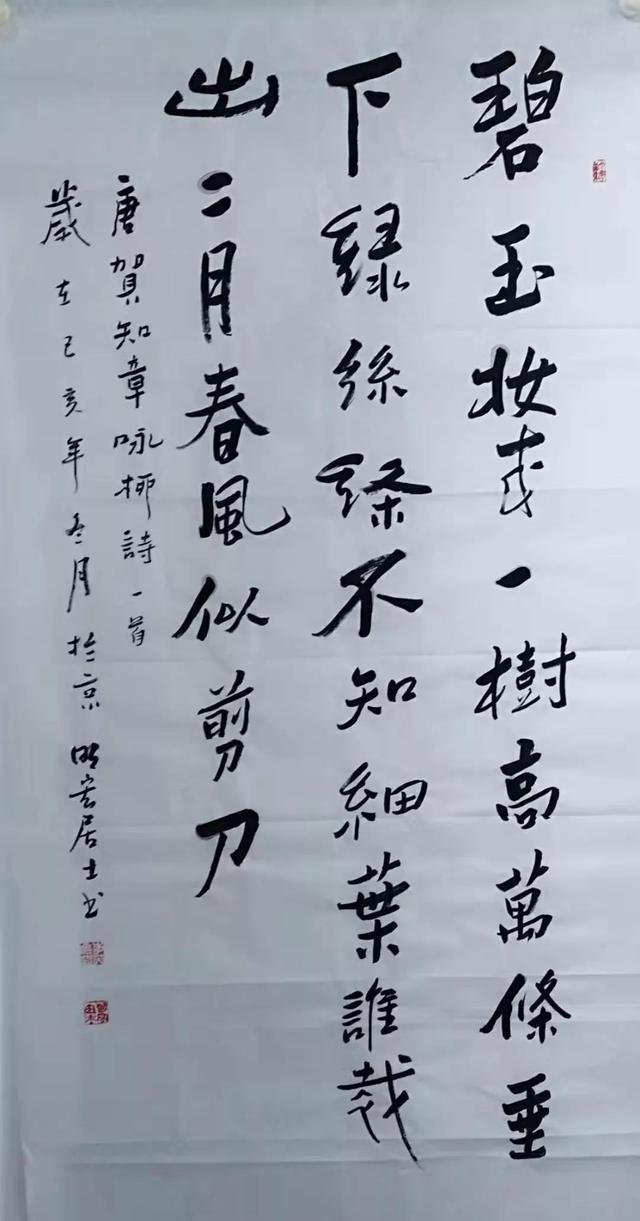 碧玉妆成一樹高萬條垂
下緑絲縧不知細葉誰裁
出二月春風似剪刀
唐賀知章咏柳詩一首
歲在己亥年冬月於京明宏居士书